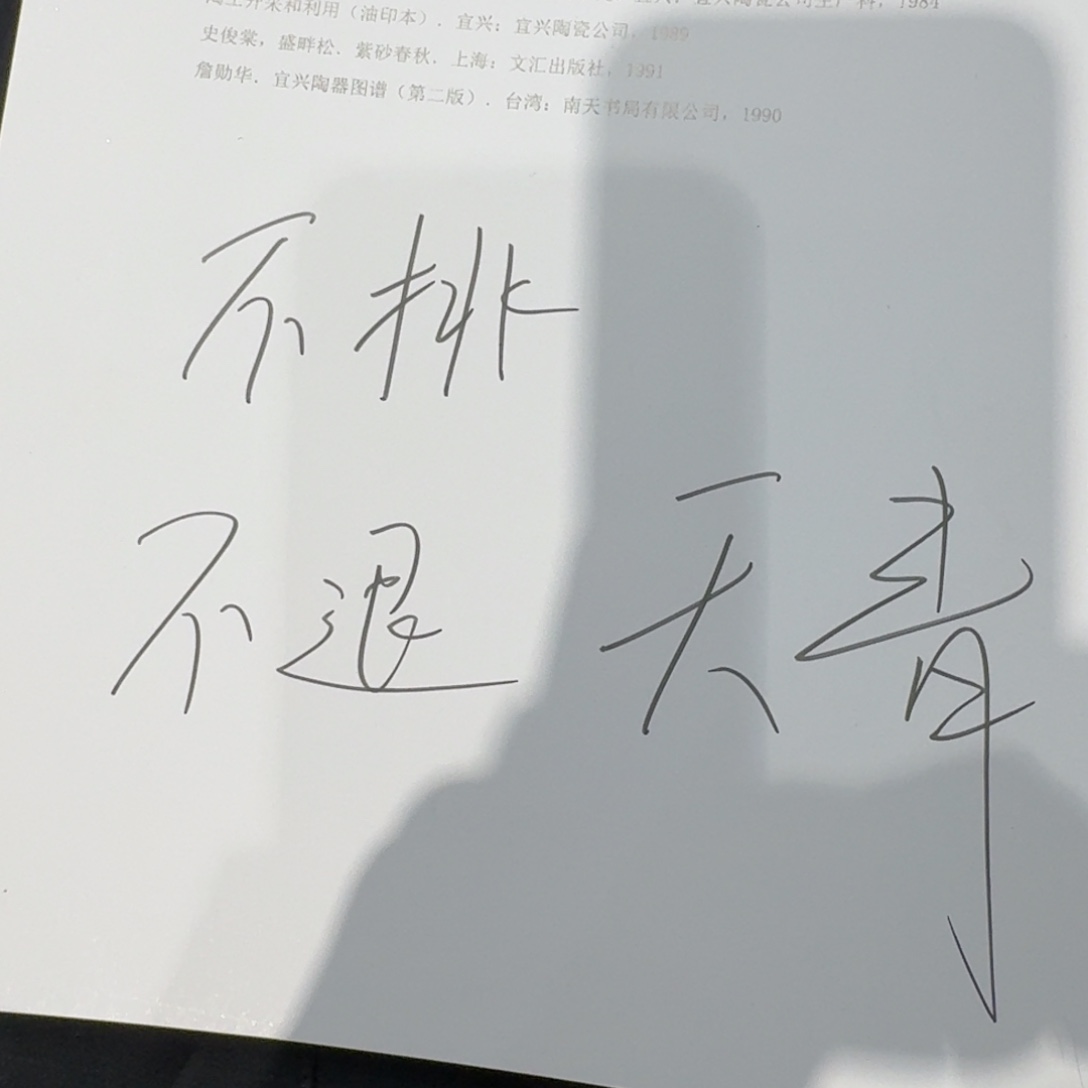 陶土开采和利用（油印本）. 宜兴：宜兴陶瓷公司, 1989
史俊棠, 盛畔松. 紫砂春秋. 上海：文汇出版社, 1991
詹勋华. 宜兴陶器图谱（第二版）. 台湾：南天书局有限公司, 1990
不排
不退 天青